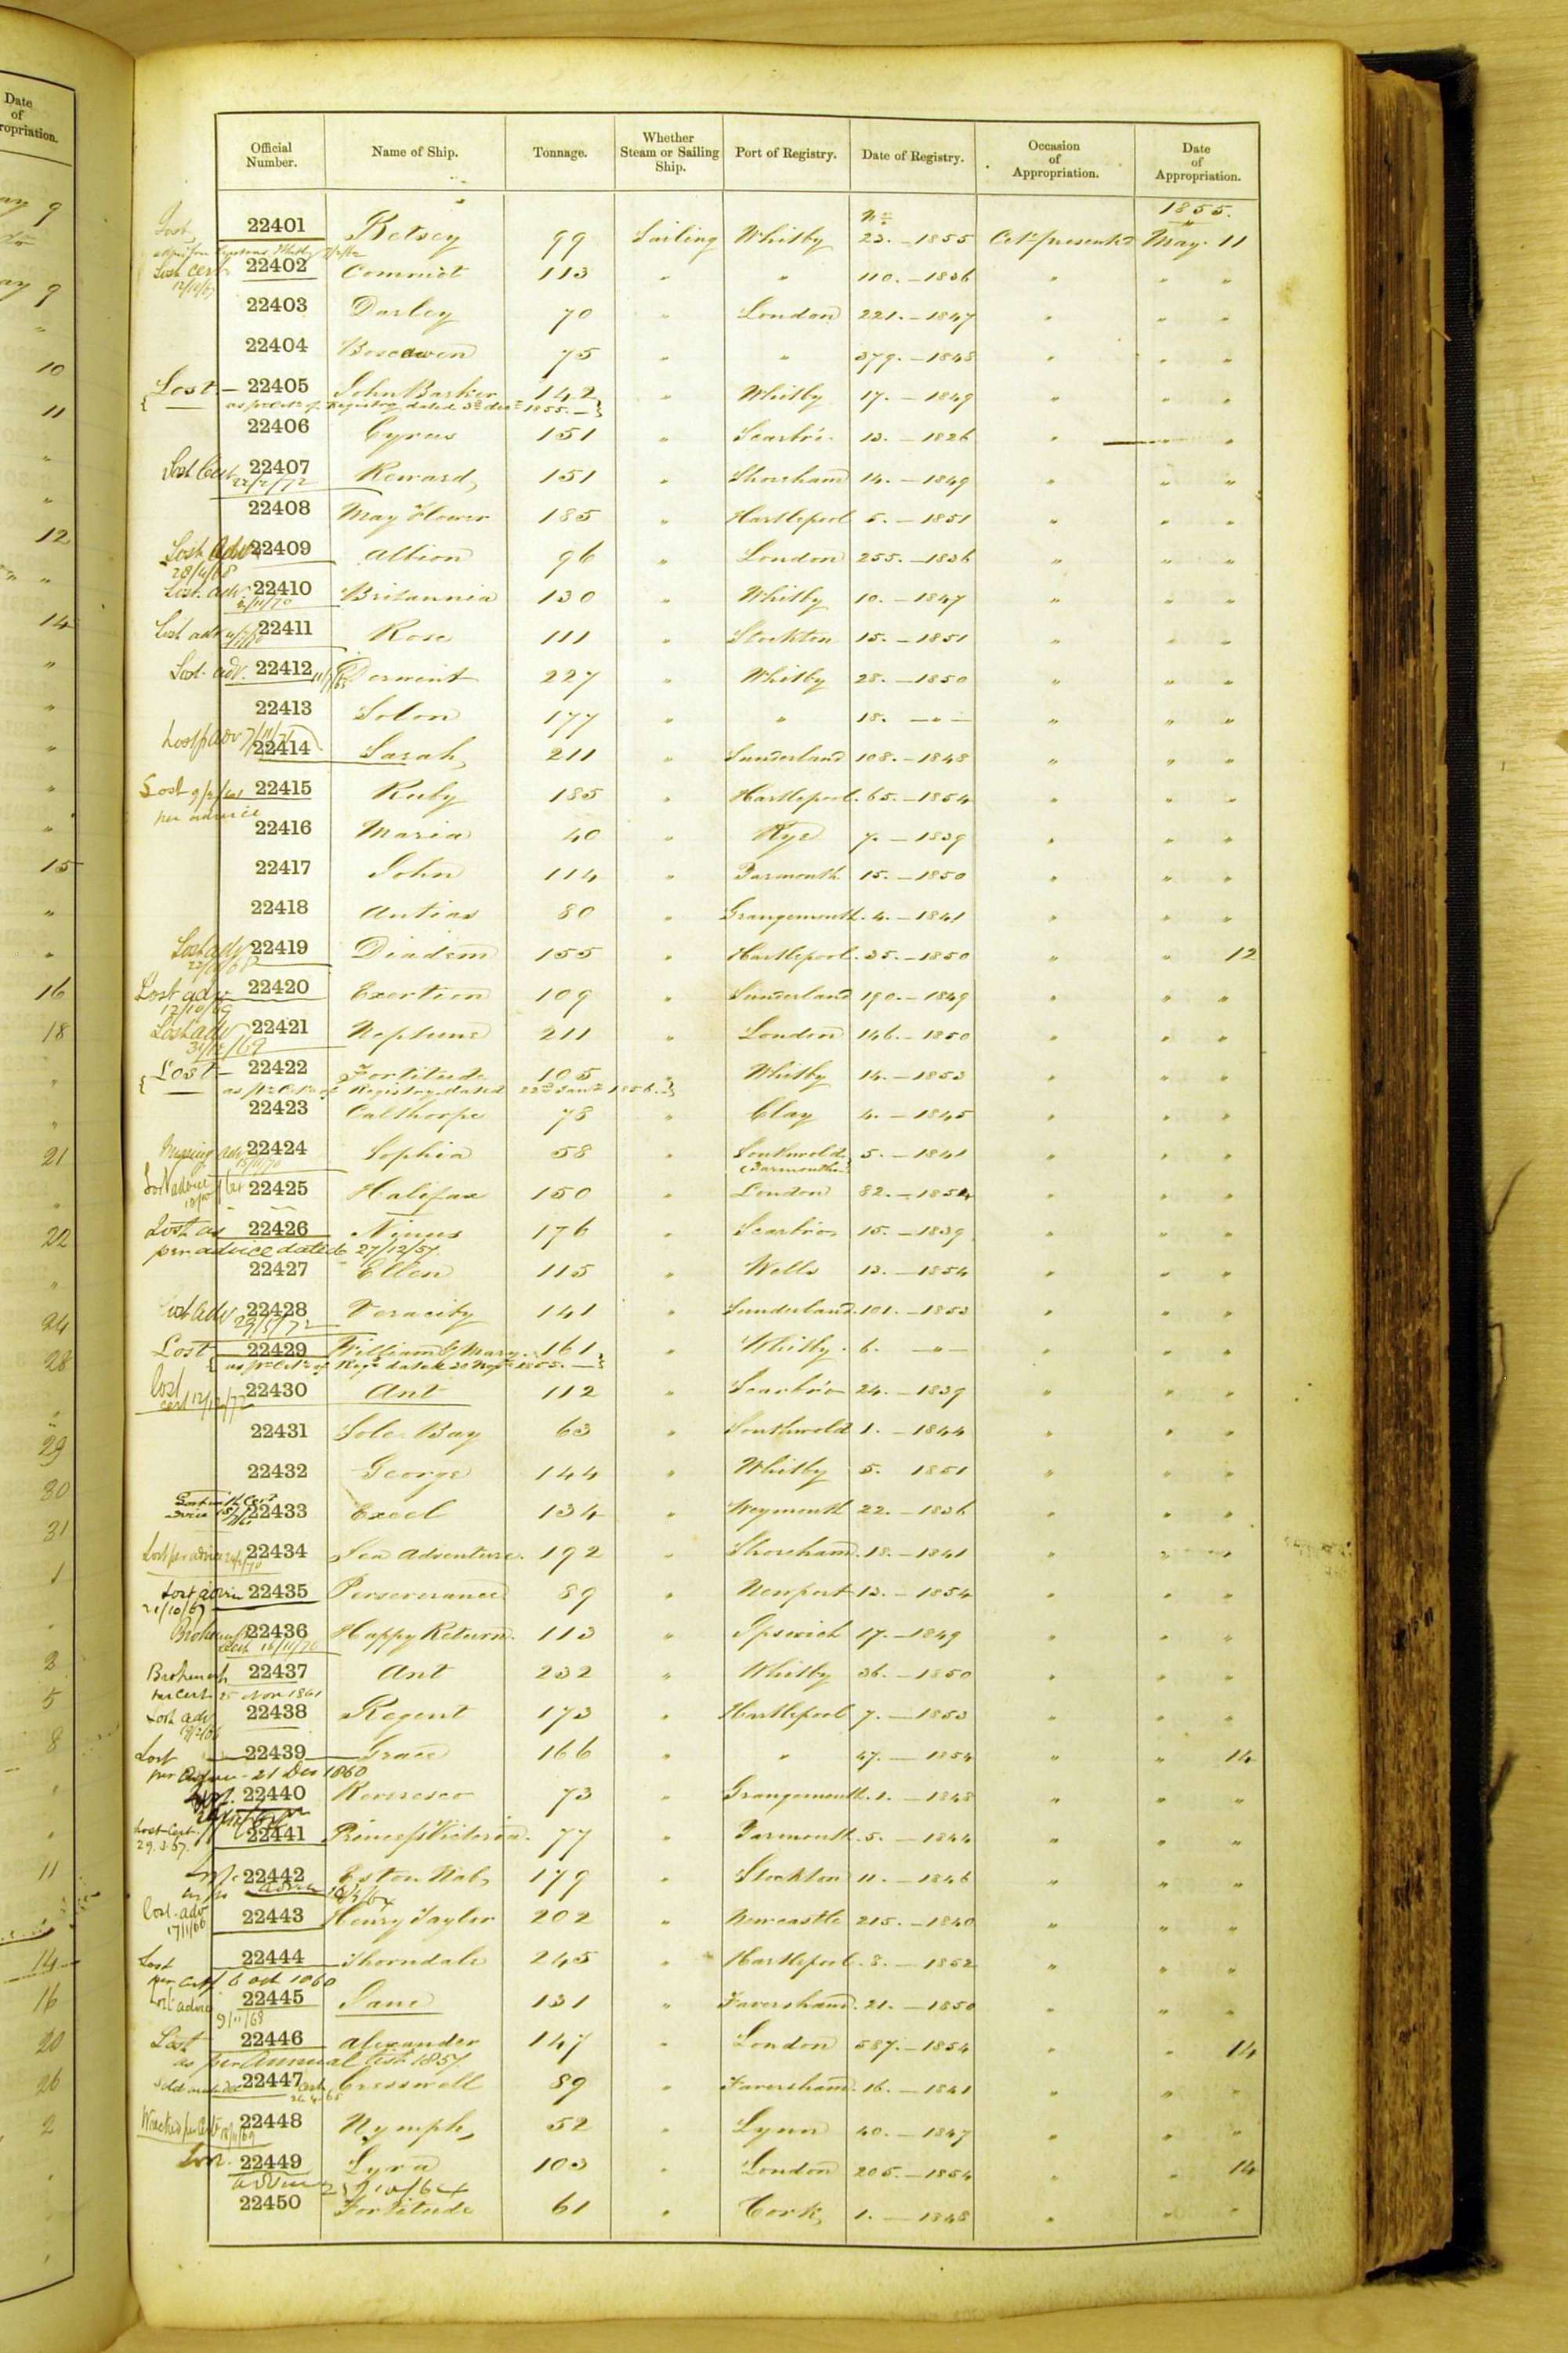 Date
of
ropriation.
ay 9
ay 9
"
10
11
"
"
12
" "
14
"
"
"
"
"
15
"
"
16
18
"
"
21
"
22
"
24
28
"
29
30
31
1
"
2
5
8
"
"
11
14
16
20
26
2
Official Number. Name of Ship. Tonnage. Whether Steam or Sailing Ship. Port of Registry. Date of Registry. Occasion of Appropriation. Date of Appropriation.
No 1855.
Lost 22401 Betsey 99 Sailing Whitby 23. - 1855 Certe presented May 11
Lost Cert 12/11/67 22402 113 " " 110. - 1836 " " "
22403 Darley 70 " London 221. - 1847 " " "
22404 Boscawen 75 " " 379. - 1848 " " "
Lost - 22405 John Barker 142 " Whitby 17. - 1849 " " "
as pr Certe of Registry dated 3rd Decr 1855. -
22406 Cyrus 151 " Scarbro. 13. - 1826 " " "
Lost Cert 22/2/72 22407 Reward 151 " Shoreham 14. - 1849 " " "
22408 May Flower 185 " Hartlepool 5. - 1851 " " "
Lost Adv 28/4/68 22409 Albion 96 " London 255. - 1836 " " "
Lost adv. 22410 Britannia 130 " Whitby 10. - 1847 " " "
Lost adv 22411 Rose 111 " Stockton 15. - 1851 " " "
Lost adv. 22412 Derwent 227 " Whitby 28. - 1850 " " "
22413 Solon 177 " " 18. - " - " " "
Lost p adv 7/11/71 22414 Sarah 211 " Sunderland 108. - 1848 " " "
Lost 9/2/61 22415 Ruby 185 " Hartlepool. 65. - 1854 " " "
per advice
22416 Maria 40 " Rye 7. - 1839 " " "
22417 John 114 " Yarmouth 15. - 1850 " " "
22418 Antias 80 " Grangemouth. 4. - 1841 " " "
Lost adv 22419 Diadem 155 " Hartlepool. 35. - 1850 " " 12
Lost adv 12/10/69 22420 Exertion 109 " Sunderland 190. - 1849 " " "
Lost adv 22421 Neptune 211 " London 146. - 1850 " " "
Lost - 22422 Fortitude 105 " Whitby 14. - 1853 " " "
as pr Certe of Registry dated 22nd Jany 1856. -
22423 Calthorpe 78 " Clay 4. - 1845 " " "
Missing adv 22424 Sophia 58 " Southwold (Yarmouth) 5. - 1841 " " "
Lost advice 22425 Halifax 150 " London 82. - 1854 " " "
Lost as 22426 Ninus 176 " Scarbro 15. - 1839 " " "
per advice dated 27/12/57.
22427 Ellen 115 " Wells 13. - 1854 " " "
Lost Adv 29/5/72 22428 Veracity 141 " Sunderland. 101. - 1853 " " "
Lost 22429 William & Mary. 161 " Whitby. 6. - " - " " "
as pr Certe of Regy dated 20 Novr 1855. -
Lost cert 12/12/72 22430 Ant 112 " Scarbro 24. - 1839 " " "
22431 Sole Bay 63 " Southwold 1. - 1844 " " "
22432 George 144 " Whitby 5. 1851 " " "
22433 Excel 134 " Weymouth 22. - 1836 " " "
Lost per advice 22434 Sea Adventure. 192 " Shoreham. 18. - 1841 " " "
Lost advice 21/10/67 22435 Perseverance 89 " Newport 13. - 1854 " " "
Broken up Cert 16/11/70 22436 Happy Return. 113 " Ipswich 17. - 1849 " " "
Broken up 22437 Ant 232 " Whitby 36. - 1850 " " "
per Cert. 25 Nov 1861
Lost adv 22438 Regent 173 " Hartlepool 7. - 1853 " " "
Lost 22439 Grace 166 " " 47. - 1854 " " 14
per Advice - 21 Dec 1860
22440 73 " Grangemouth. 1. - 1848 " " "
Lost Cert. 29.3.67. 22441 Princess Victoria. 77 " Yarmouth. 5. - 1844 " " "
22442 Eston Nab 179 " Stockton 11. - 1846 " " "
advice
Lost. adv 17/1/66 22443 Henry Taylor 202 " Newcastle 215. - 1840 " " "
Lost 22444 Thorndale 245 " Hartlepool. 8. - 1852 " " "
per Cert 6 Oct 1860
Lost advice 9/11/68 22445 Jane 131 " Faversham. 21. - 1850 " " "
Lost 22446 Alexander 147 " London 587. - 1854 " " 14
as per Annual List 1857.
22447 Cresswell 89 " Faversham. 16. - 1841 " " "
Wrecked per Cert 22448 Nymph 52 " Lynn 40. - 1847 " " "
Lost. 22449 Lyra 103 " London 205. - 1854 " " 14
advice
22450 Fortitude 61 " Cork 1. - 1848 " " "